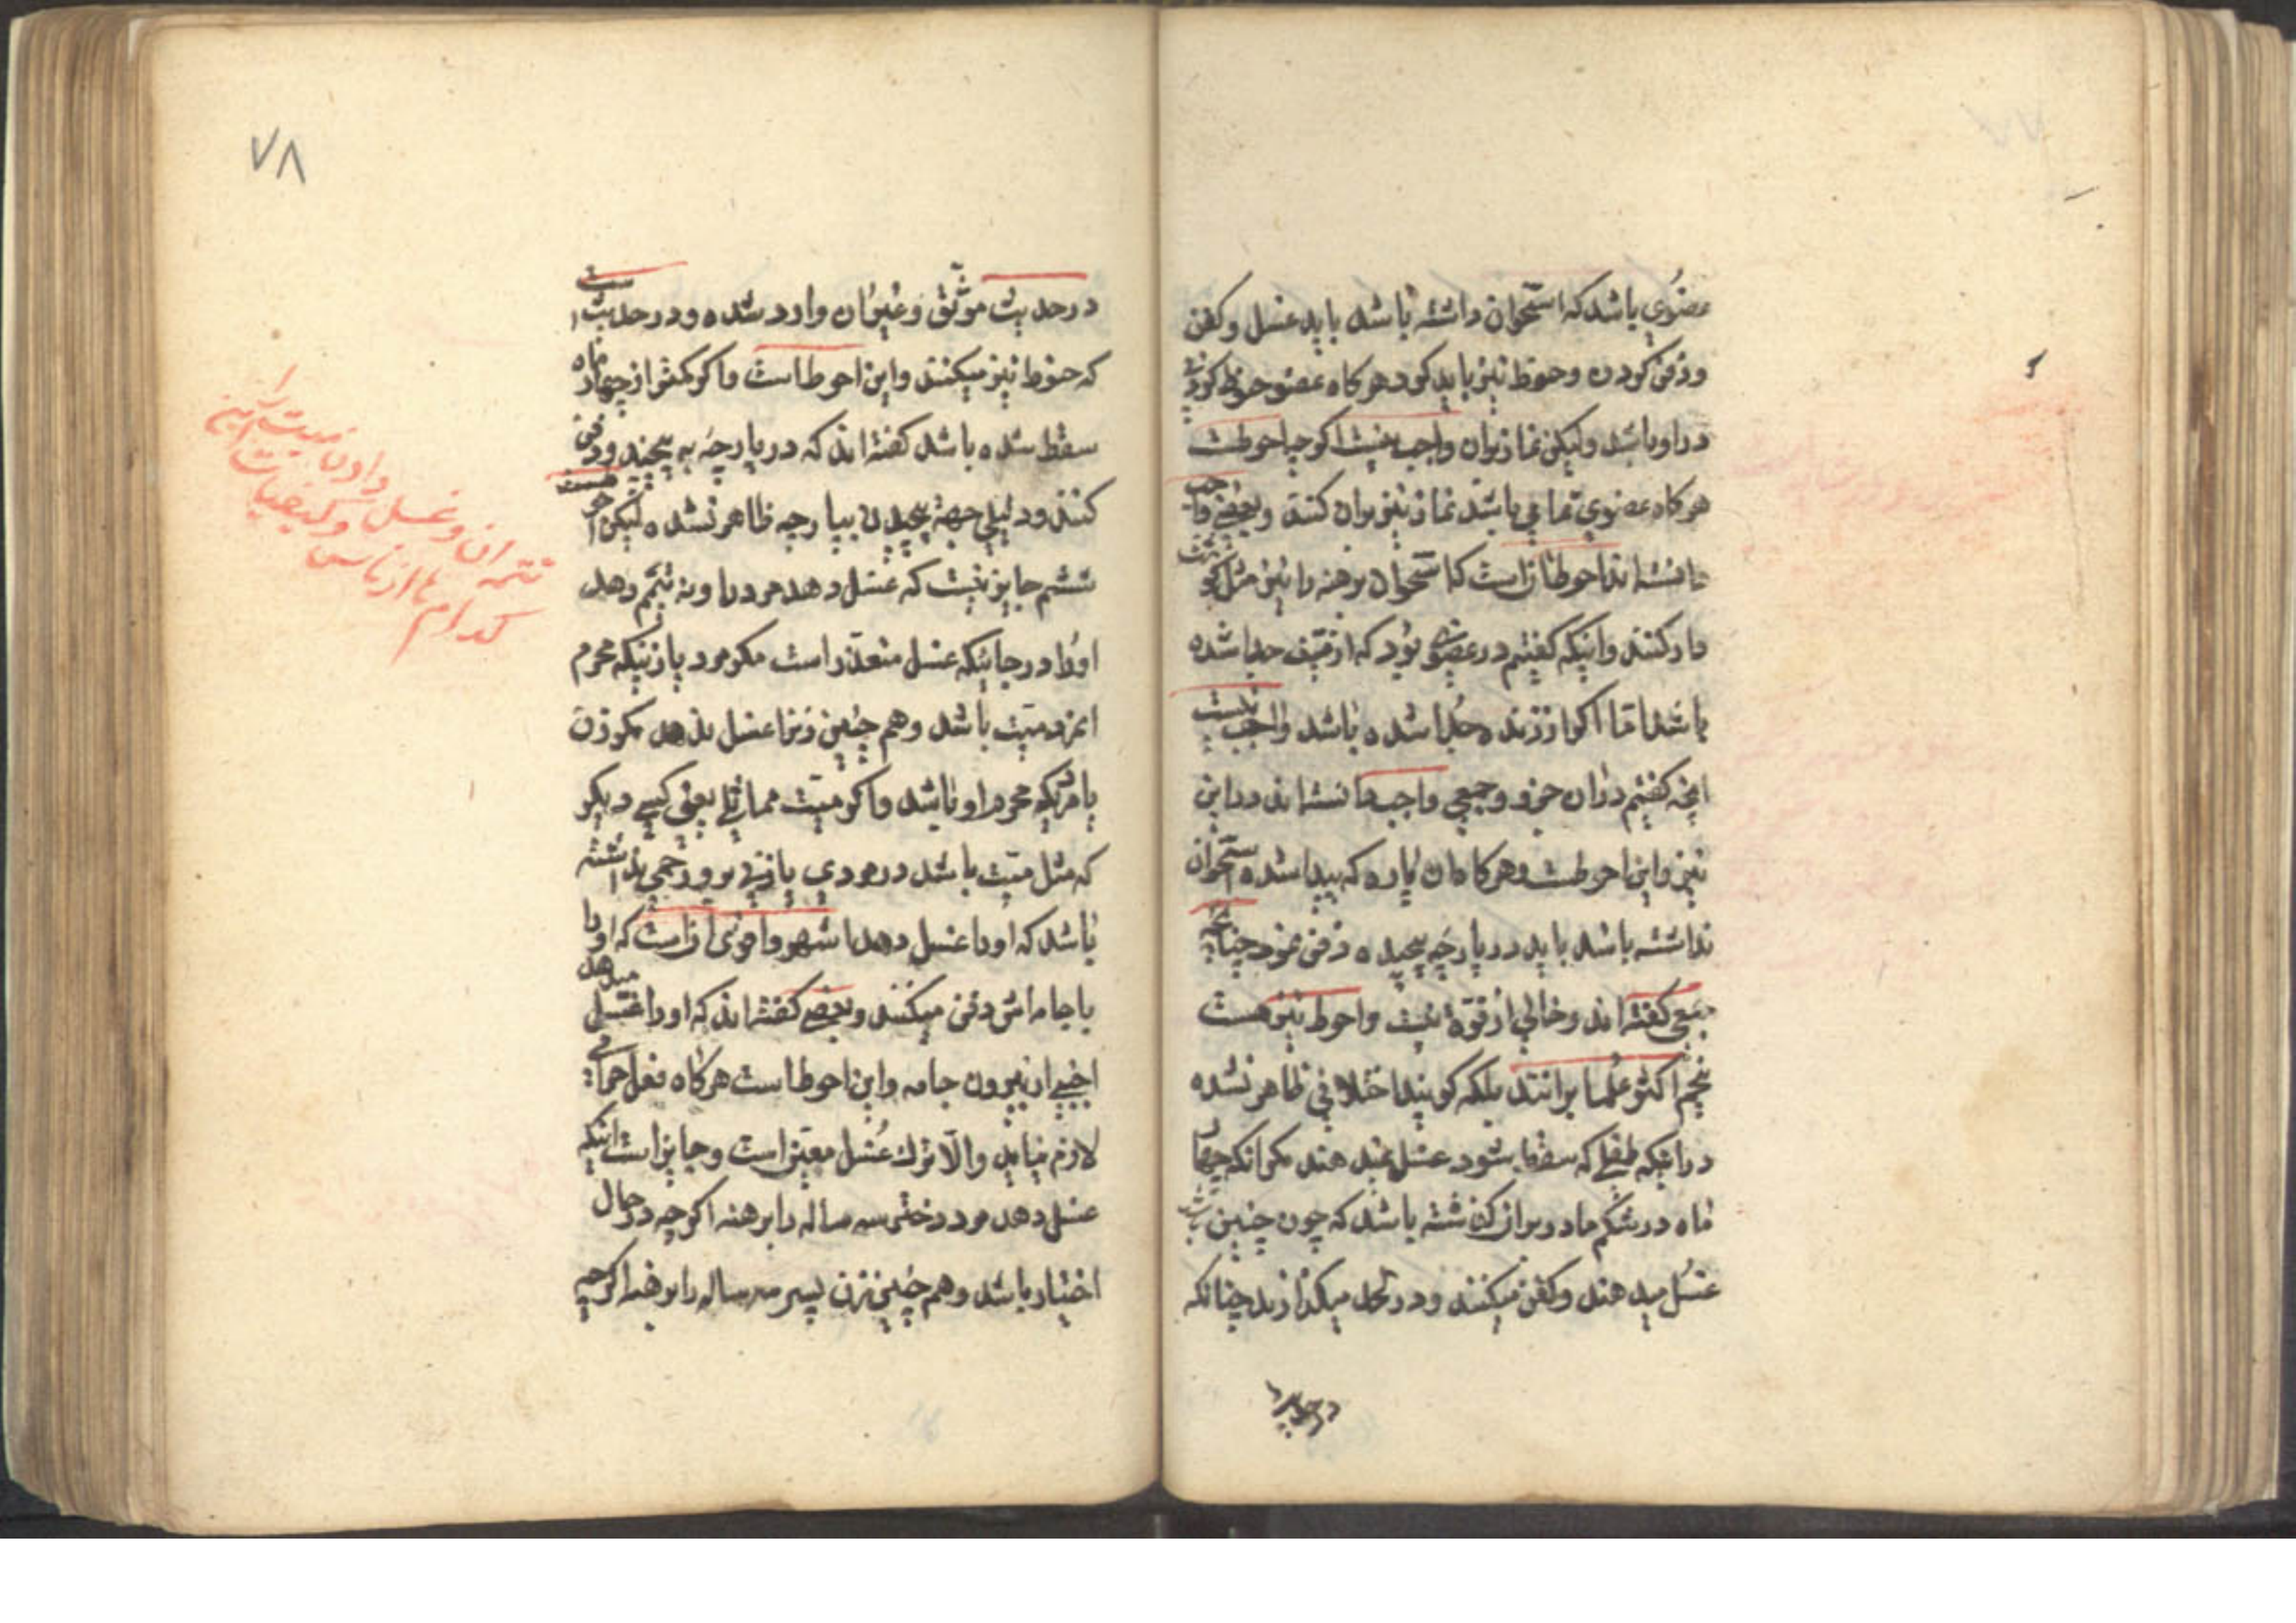 عضوی باشد که استخوان داشته باشد باید غسل و کفن
و دفن کردن و حنوط نیز باید کرد هرگاه عضو حنوط کردنی
در او باشد ولیکن نماز بران واجب نیست اگرچه احوطست
هرگاه عضوی تمامی باشد نماز نیز بران کنند و بعضی واجب
دانسته اند احوط انست که استخوان برهنه را نیز مثل
دار کنند و اینکه گفتیم در عضوی بود که از میت جدا شده
باشد اما اگر از زنده جدا شده باشد واجب نیست
انچه کفتیم دران جزو و جمعی واجب دانسته اند در این
نیز و این احوطست و هرگاه ان پاره که پیدا شده استخوان
نداشته باشد باید در پارچه پیچیده دفن نمود چنانچه
جمعی گفته اند و خالی از قوة نیست و احوط نیز هست
پنجم اکثر علما برانند بلکه گویند اختلافی ظاهر نشده
در اینکه طفلی که سقط شود غسل نمیدهند مگر انکه چهار
ماه در شکم مادر بر او گذشته باشد که چون چنین باشد
غسل میدهند و کفن میکنند و در لحد میگذارند چنانکه
در حدیث
۷۸
در حدیث موثق و غیر ان وارد شده و در حدیث است
که حنوط نیز میکنند و این احوط است و اگر کمتر از چهار ماه
سقط شده باشد کفته اند که در پارچه به پیچند و دفن
کنند و دلیلی جهة پیچیدن بپارچه ظاهر نشده لیکن احوطست
ششم جایز نیست که غسل دهد مرد را و نه تیمم دهد
او را در جائیکه غسل متعذر است مگر مرد یا زنیکه محرم
ان مرد میت باشد و هم چنین زنرا غسل ندهد مگر زن
یا مردیکه محرم او باشد و اگر میت مماثلی یعنی کسی دیگر
که مثل میت باشد در مردی یا زنی بر و رحمی نداشته
باشد که او را غسل دهد اشهر و اقوی انست که او را
با جامه اش دفن میکنند و بعضی کفته اند که او را غسل میدهد
اجنبی از بیرون جامه و این احوط است هرگاه فعل حرامی
لازم نیاید والا ترک غسل معین است و جایز است اینکه
غسل دهد مرد دختر سه ساله را برهنه اگرچه در حال
اختیار باشد و هم چنین زن پسر سه ساله را برهنه اگرچه
تتمه ان و غسل دادن میت را
کدام از ناس و کیفیات